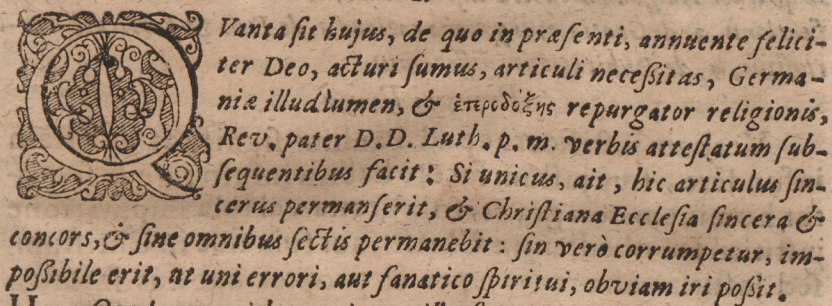 QVanta sit hujus, de quo in præsenti, annuente felici-
ter Deo, acturi sumus, articuli necessitas, Germa-
niæ illud lumen, & ἑτεροδόξης repurgator religionis,
Rev. pater D. D. Luth. p. m. verbis attestatum sub-
sequentibus facit: Si unicus, ait, hic articulus sin-
cerus permanserit, & Christiana Ecclesia sincera &
concors, & sine omnibus sectis permanebit: sin verò corrumpetur, im-
possibile erit, ut uni errori, aut fanatico spiritui, obviam iri possit.